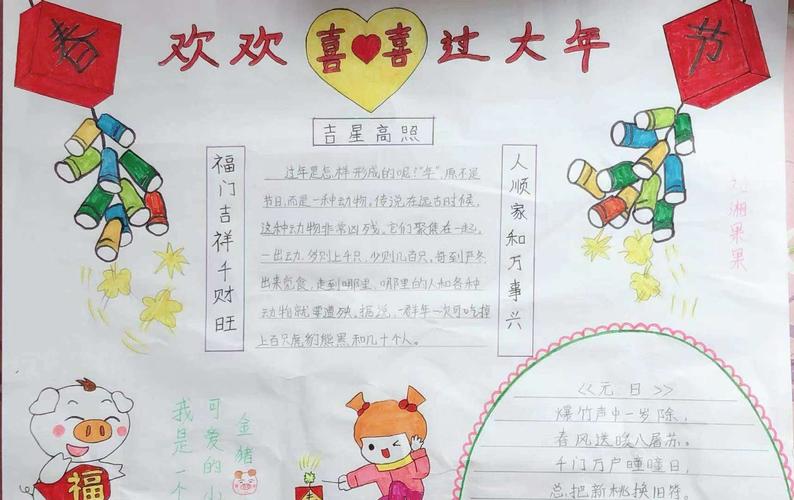 春
欢欢喜喜过大年
节
吉星高照
福门吉祥千财旺
过年是怎样形成的呢?"年"原不是
节日,而是一种动物,传说在远古时候,
这种动物非常凶残,它们聚集在一起,
一出动,多则上千只,少则几百只,每到严冬
出来觅食,走到哪里,哪里的人和各种
动物就要遭殃,据说,一群年一次可吃掉
上百只虎豹熊黑和几十个人。
人顺家和万事兴
湘果果
福
我是一个
可爱的小
金猪
《元日》
爆竹声中一岁除,
春风送暖入屠苏。
千门万户曈曈日,
总把新桃换旧符